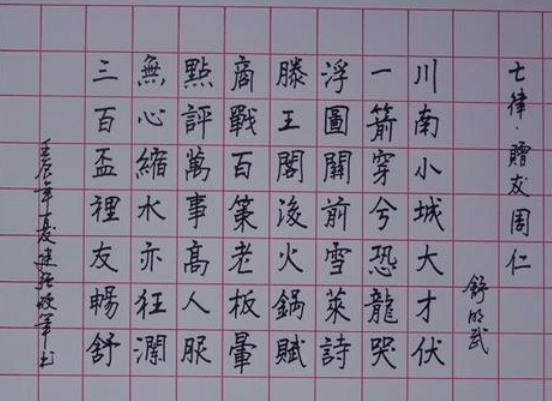 七律·贈友周仁
舒明武
川南小城大才伏
一箭穿兮恐龍哭
浮圖關前雪萊詩
滕王閣後火鍋賦
商戰百策老板暈
點評萬事高人服
無心縮水亦狂瀾
三百盃裡友暢舒
壬辰年夏建強敬筆书